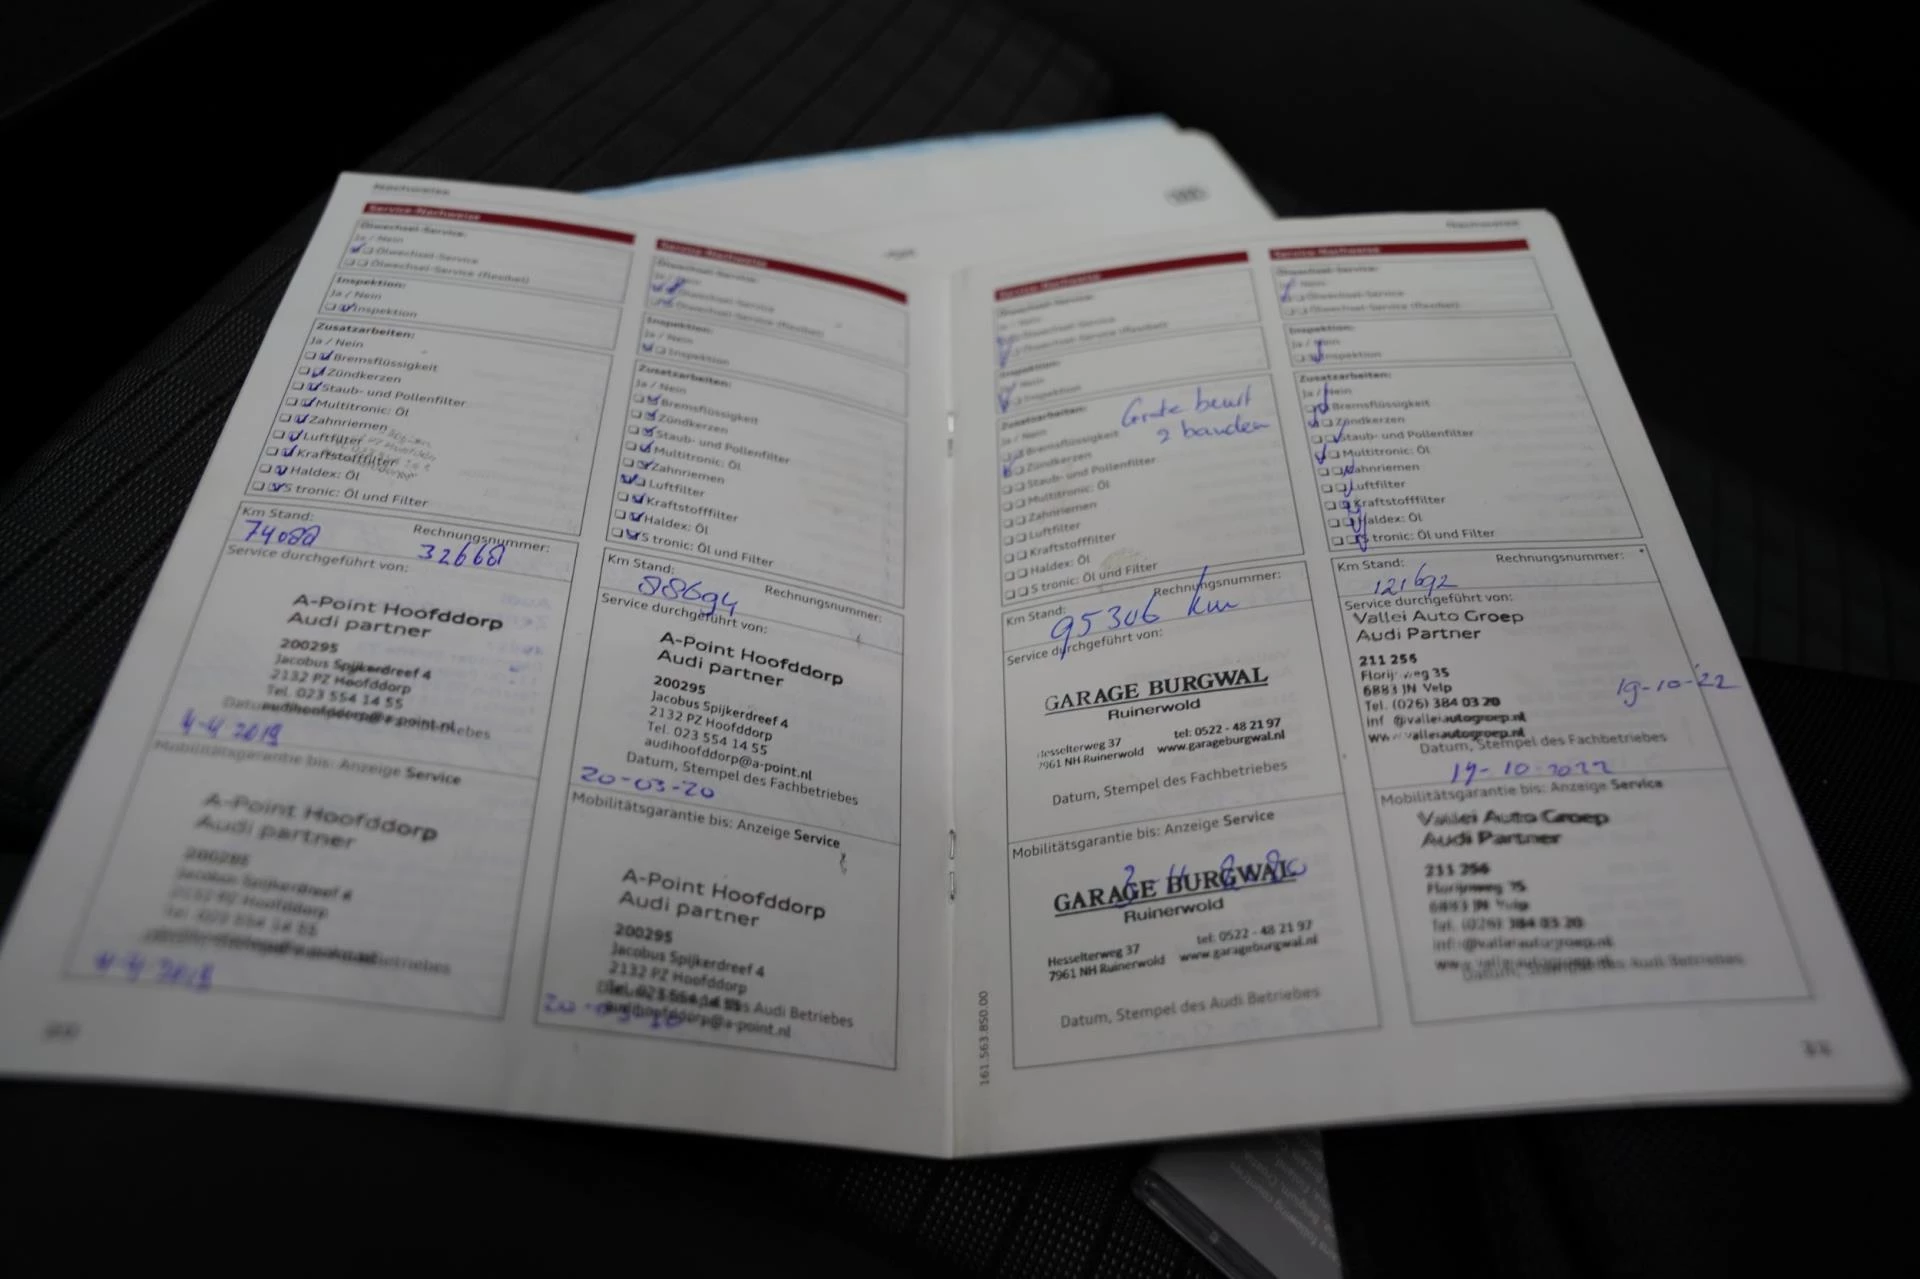 Nachweise
Service-Nachweise
Ölwechsel-Service:
Ja / Nein
Ölwechsel-Service
Ölwechsel-Service (flexibel)
Inspektion:
Ja / Nein
Inspektion
Zusatzarbeiten:
Ja / Nein
Bremsflüssigkeit
Zündkerzen
Staub- und Pollenfilter
Multitronic: Öl
Zahnriemen
Luftfilter
Kraftstofffilter
Haldex: Öl
S tronic: Öl und Filter
Km Stand:
Rechnungsnummer:
Service durchgeführt von:
A-Point Hoofddorp
Audi partner
200295
Jacobus Spijkerdreef 4
2132 PZ Hoofddorp
Tel. 023 554 14 55
audihoofddorp@a-point.nl
4-4 2019
Mobilitätsgarantie bis: Anzeige Service
A-Point Hoofddorp
Audi partner
200295
Jacobus Spijkerdreef 4
2132 PZ Hoofddorp
Tel. 023 554 14 55
4-4 2019
Service-Nachweise
Ölwechsel-Service:
Ölwechsel-Service
Ölwechsel-Service (flexibel)
Inspektion:
Ja / Nein
Inspektion
Zusatzarbeiten:
Ja / Nein
Bremsflüssigkeit
Zündkerzen
Staub- und Pollenfilter
Multitronic: Öl
Zahnriemen
Luftfilter
Kraftstofffilter
Haldex: Öl
S tronic: Öl und Filter
Km Stand:
88694
Rechnungsnummer:
Service durchgeführt von:
A-Point Hoofddorp
Audi partner
200295
Jacobus Spijkerdreef 4
2132 PZ Hoofddorp
Tel. 023 554 14 55
audihoofddorp@a-point.nl
Datum, Stempel des Fachbetriebes
20-03-20
Mobilitätsgarantie bis: Anzeige Service
A-Point Hoofddorp
Audi partner
200295
Jacobus Spijkerdreef 4
2132 PZ Hoofddorp
Tel. 023 554 14 55
audihoofddorp@a-point.nl
Service-Nachweise
Ölwechsel-Service:
Ölwechsel-Service
Ölwechsel-Service (flexibel)
Inspektion:
Nein
Inspektion
Zusatzarbeiten:
Ja / Nein
Grote beurt
2 banden
Bremsflüssigkeit
Zündkerzen
Staub- und Pollenfilter
Multitronic: Öl
Zahnriemen
Luftfilter
Kraftstofffilter
Haldex: Öl
S tronic: Öl und Filter
Km Stand:
Rechnungsnummer:
95306 km
Service durchgeführt von:
GARAGE BURGWAL
Ruinerwold
Hesselterweg 37
tel: 0522 - 48 21 97
7961 NH Ruinerwold
www.garageburgwal.nl
Datum, Stempel des Fachbetriebes
Mobilitätsgarantie bis: Anzeige Service
GARAGE BURGWAL
Ruinerwold
Hesselterweg 37
tel: 0522 - 48 21 97
7961 NH Ruinerwold
www.garageburgwal.nl
Datum, Stempel des Audi Betriebes
161.563.850.00
Nachweise
Service-Nachweise
Ölwechsel-Service:
Ölwechsel-Service
Ölwechsel-Service (flexibel)
Inspektion:
Inspektion
Zusatzarbeiten:
Bremsflüssigkeit
Zündkerzen
Staub- und Pollenfilter
Multitronic: Öl
Zahnriemen
Luftfilter
Kraftstofffilter
Haldex: Öl
S tronic: Öl und Filter
Km Stand:
Rechnungsnummer:
121692
Service durchgeführt von:
Vallei Auto Groep
Audi Partner
211 256
35
6883 JN Velp
Tel. (026) 384 03 20
19-10-22
Datum, Stempel des Fachbetriebes
19-10-2022
Mobilitätsgarantie bis: Anzeige Service
Vallei Auto Groep
Audi Partner
211 256
6883 JN Velp
Tel. (026) 384 03 20